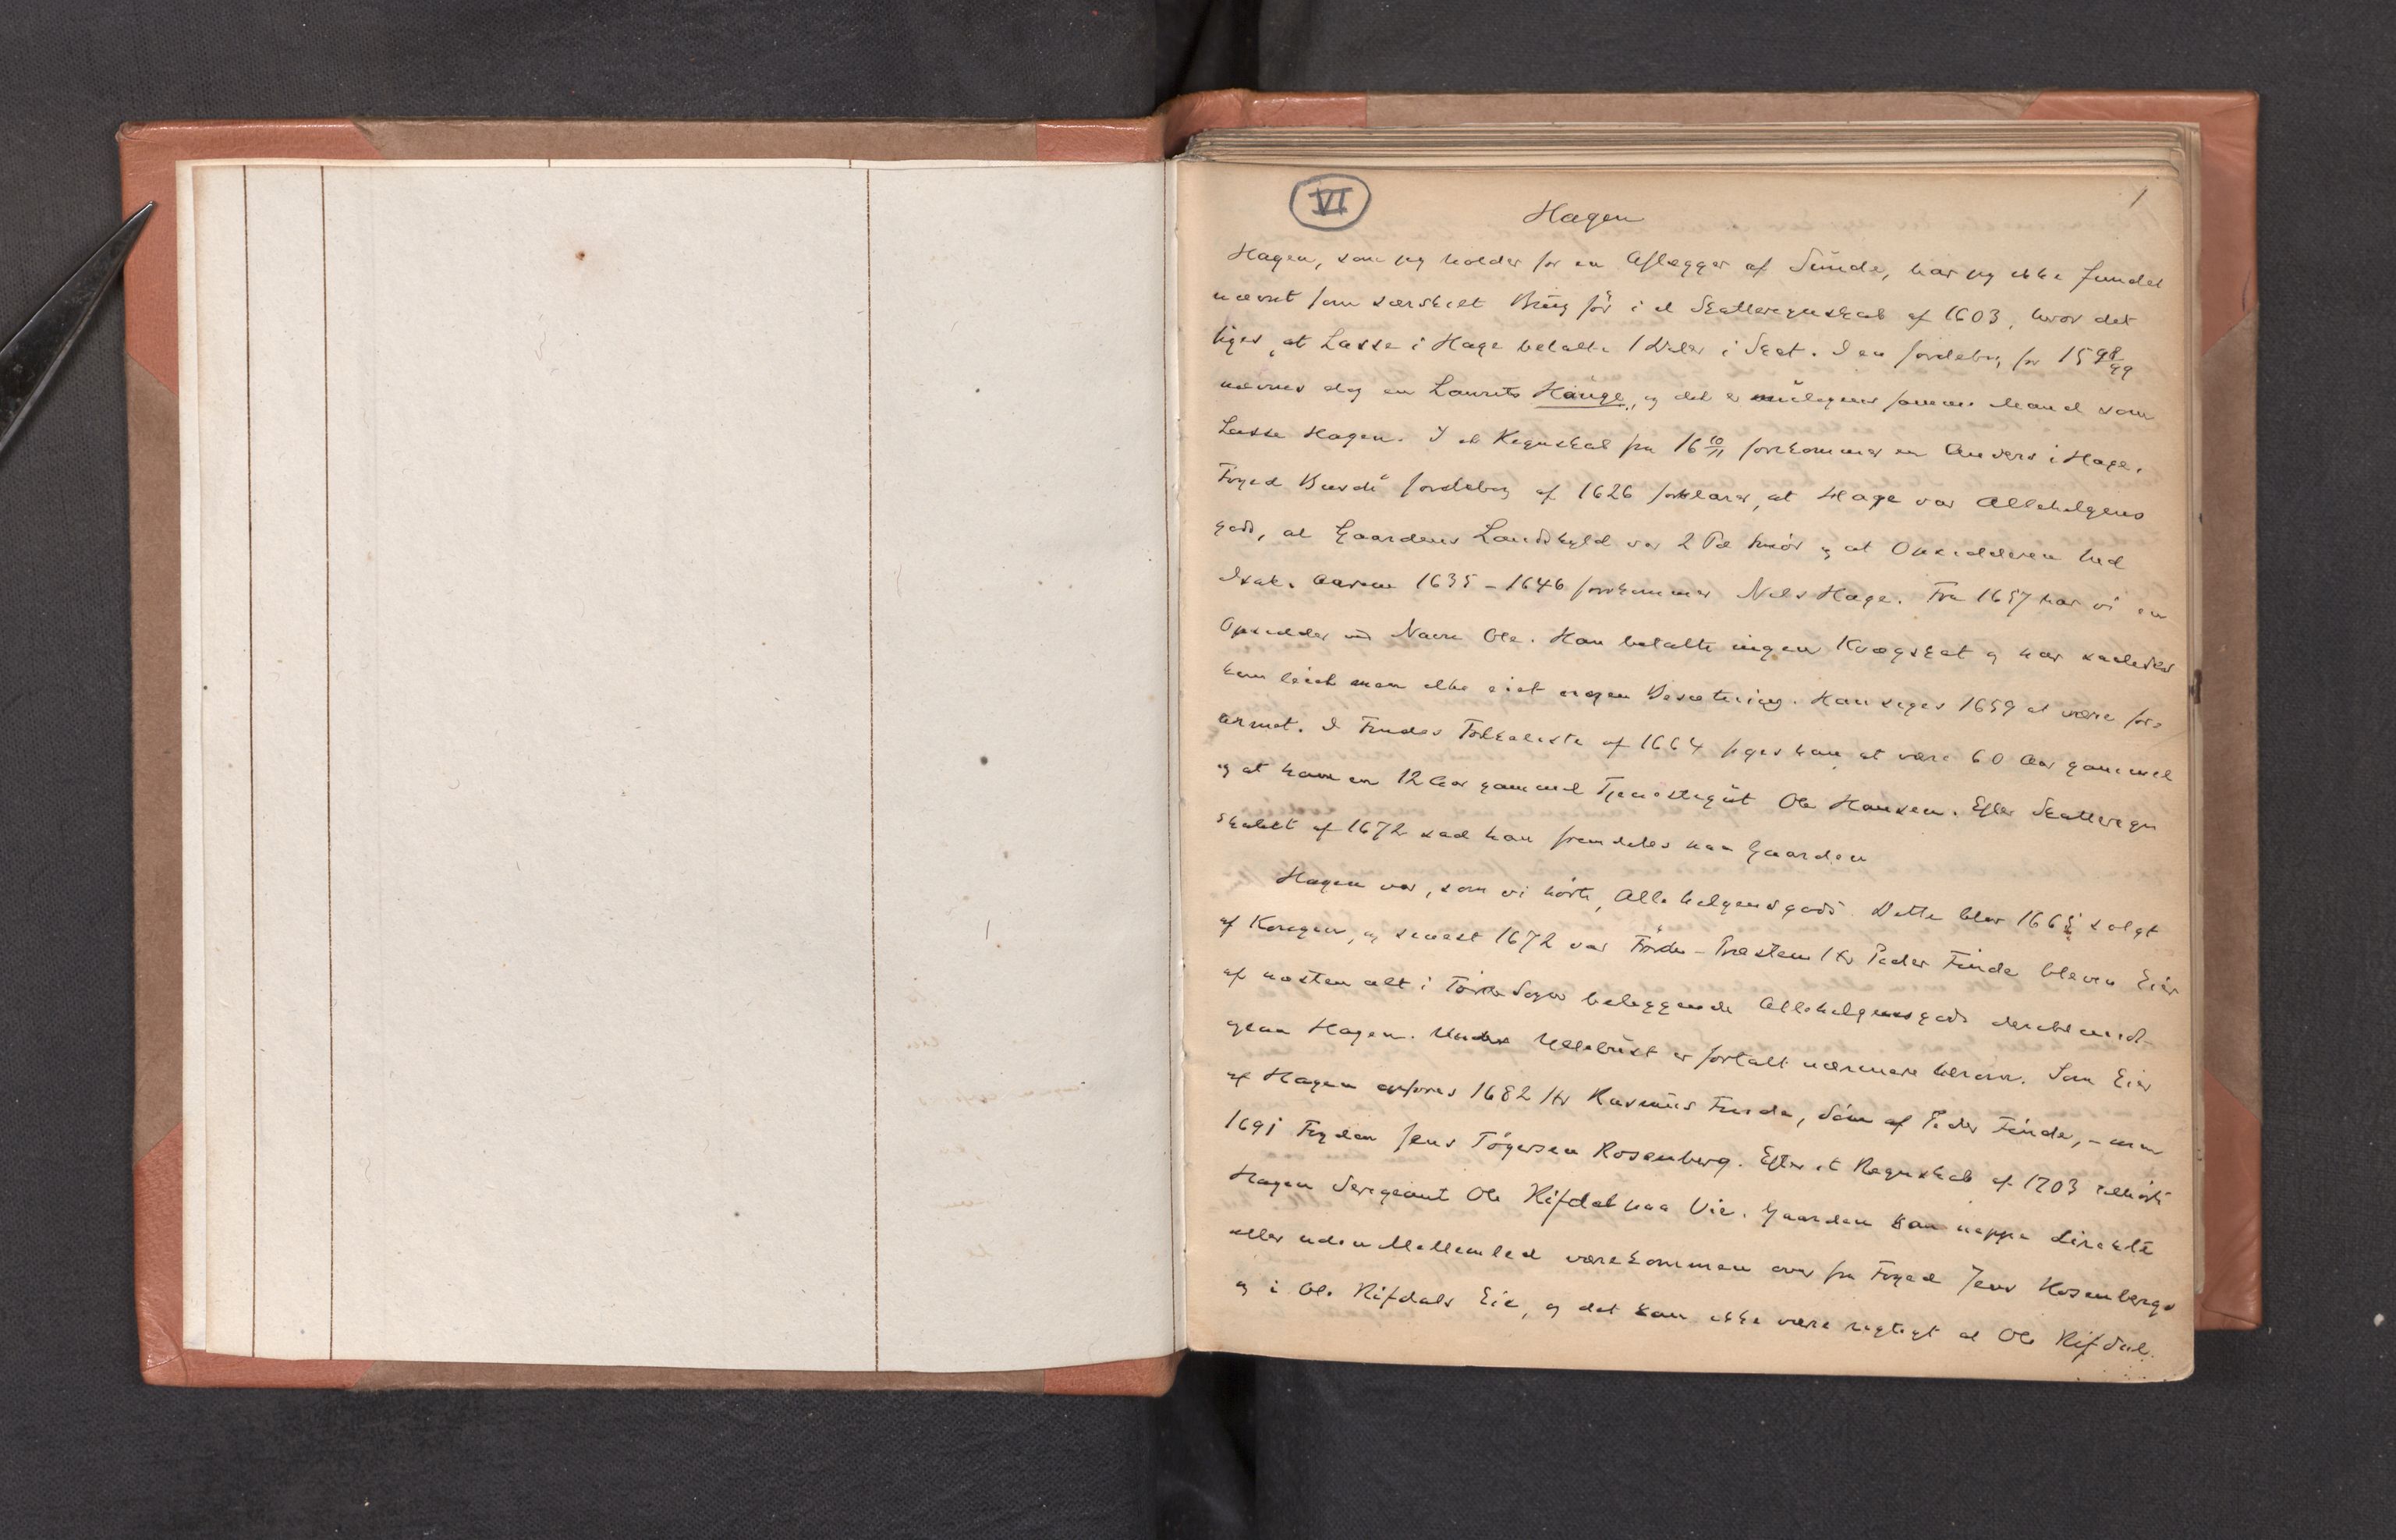 VI
1
Hagen
Hagen, som jeg holder for en Aflægger af Sunde, har jeg ikke fundet
nævnt som særskilt Brug før i et Skatteregnskab af 1603, hvor det
siges, at Lasse i Hage betalte 1 Daler i Skat. I en Jordebog for 1598/99
nævnes dog en Laurits Hauge, og det er muligens samme Mand som
Lasse Hagen. I et Regnskab fra 16 10/11 forekommer en Anders i Hage.
Foged Bundi Jordebog af 1626 forklarer, at Hage var Allehelgens
gods, at Gaardens Landskyld var 2 Pd Smör og at Opsidderen hed
Isak. Aarene 1635-1646 forekommer Nils Hage. Fra 1657 har vi en
Opsidder ved Navn Ole. Han betalte ingen Kvægskat og har saaledes
man ikke eiet nogen Besætning. Han siges 1659 at være for-
armet. I Fundes Folkeliste af 1664 siges han at være 60 Aar gammel
og at have en 12 Aar gammel Tjenestegut Ole Hansen. Efter Skatteregn
skabet af 1672 sad han fremdeles paa Gaarden
Hagen var, som vi hørte, Allehelgensgods. Dette blev 1665 solgt
af Kongen, og senest 1672 var Førde-Præsten Hr Peder Finde bleven Eier
af næsten alt i Førde Sogn beliggende Allehelgensgods deriblandt
ogsaa Hagen. Under Ullebust er fortalt nærmere herom. Som Eier
af Hagen opføres 1682 Hr Rasmus Finde, Søn af Peder Finde, - men
1691 Fogden Jens Tøgersen Rosenberg. Efter et Regnskab af 1703 tilhørte
Hagen Sergeant Ole Rifdal paa Vie. Gaarden kan neppe direkte
eller uden Mellemled være kommen over fra Foged Jens Rosenbergs
og i Ole Rifdals Eie, og det kan ikke være rigtigt at Ole Rifdal